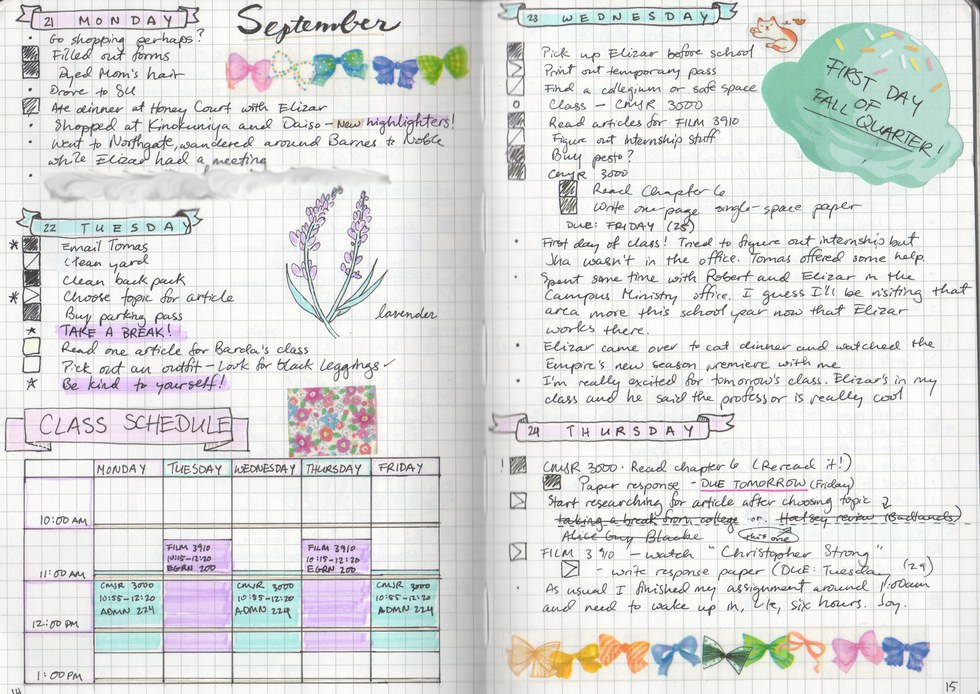 21 MONDAY
September
Go shopping perhaps?
Filled out forms
Dyed Mom's hair
Drove to SU
Ate dinner at Honey Court with Elizar
Shopped at Kinokuniya and Daiso - new highlighters!
Went to Northgate, wandered around Barnes to Noble
while Elizar had a meeting
22 TUESDAY
Email Tomas
Clean yard
Clean back pack
Choose topic for article
Buy parking pass
TAKE A BREAK!
Read one article for Barda's class
Pick out an outfit - Look for black leggings
Be kind to yourself!
lavender
CLASS SCHEDULE
MONDAY TUESDAY WEDNESDAY THURSDAY FRIDAY
10:00 AM
FILM 3910 FILM 3910
10:15-12:20 10:15-12:20
11:00 AM EGRN 200 EGRN 200
CMJR 3000 CMJR 3000 CMJR 3000
10:55-12:20 10:55-12:20 10:55-12:20
ADMN 224 ADMN 224 ADMN 224
12:00 PM
1:00 PM
14
23 WEDNESDAY
FIRST DAY
OF
FALL QUARTER!
Pick up Elizar before school
Print out temporary pass
Find a collegium or safe space
Class - CMJR 3000
Read articles for FILM 3910
Figure out internship stuff
Buy pesto?
CMJR 3000
Read Chapter 6
Write one-page single-space paper
DUE: FRIDAY (25)
First day of class! Tried to figure out internship but
Jha wasn't in the office. Tomas offered some help.
Spent some time with Robert and Elizar in the
Campus Ministry office. I guess I'll be visiting that
area more this school year now that Elizar
works there.
Elizar came over to eat dinner and watched the
Empire's new season premiere with me.
I'm really excited for tomorrow's class. Elizar's in my
class and he said the professor is really cool
24 THURSDAY
! CMJR 3000 - Read chapter 6 (Reread it!)
Paper response - DUE TOMORROW (Friday)
Start researching for article after choosing topic
taking a break from college or Halsey review (Badlands)
Alice Guy Blache this one
FILM 3910 - watch "Christopher Strong"
- write response paper (DUE: Tuesday (29)
As usual I finished my assignment around 1:00am
and need to wake up in, like, six hours. Joy.
15